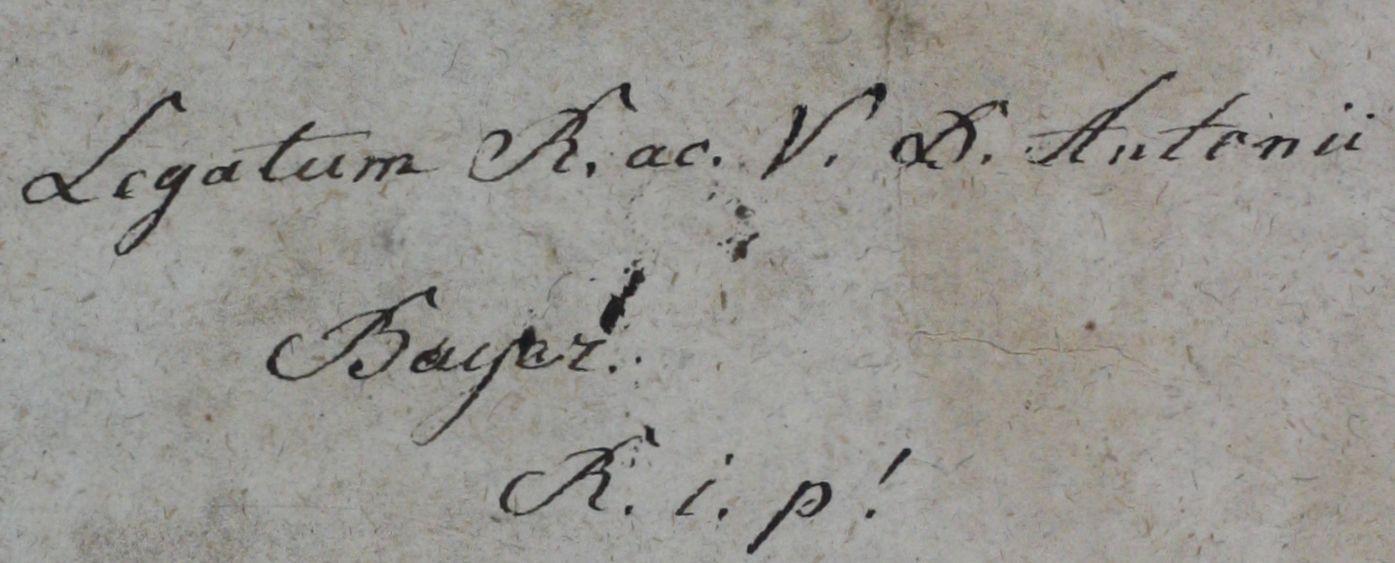 Legatum R. ac. V. D. Antonii
Bayer!
R. i. p!